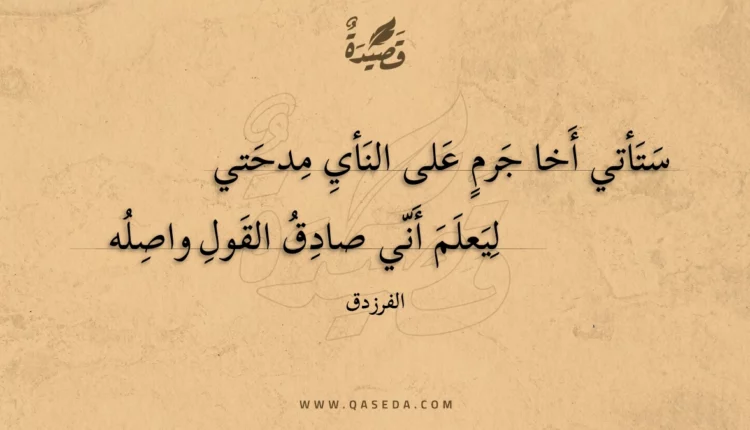 قَصِيْدَةٌ
سَتَأتي أَخا جَرمٍ عَلى النَأيِ مِدحَتي
لِيَعلَمَ أَنّي صادِقُ القَولِ واصِلُه
الفرزدق
WWW.QASEDA.COM